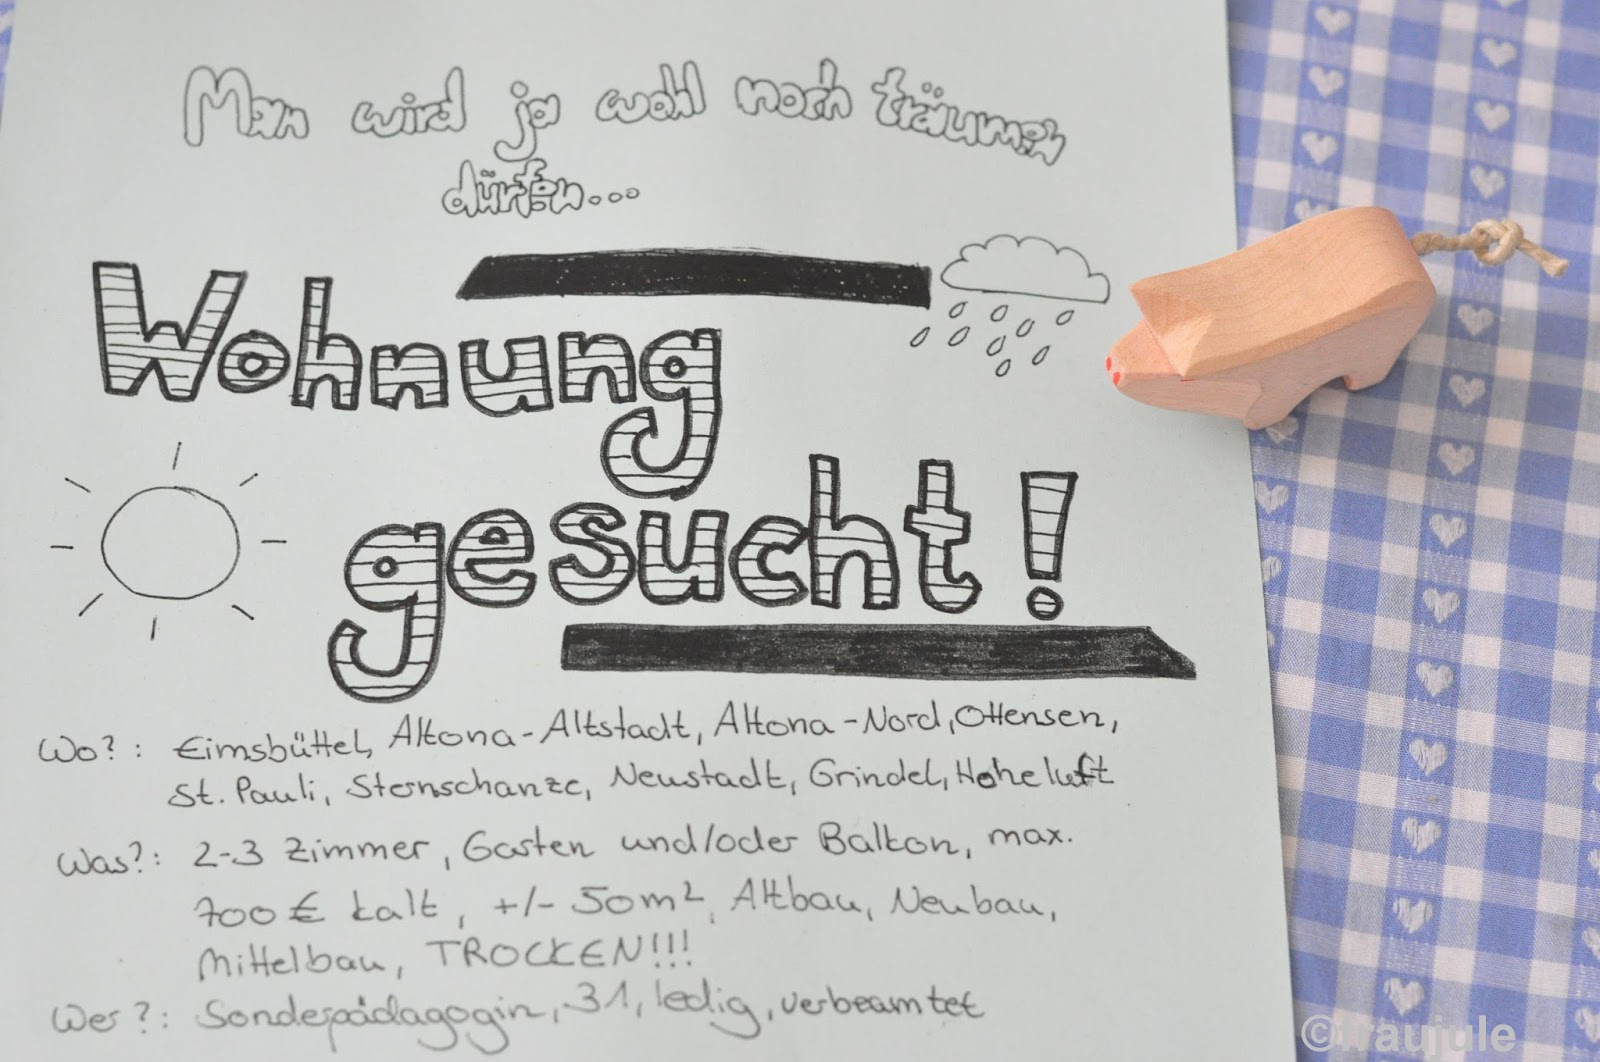 Man wird ja wohl noch träumen
dürfen...
Wohnung
gesucht!
Wo?: Eimsbüttel, Altona-Altstadt, Altona-Nord, Ottensen,
St. Pauli, Sternschanze, Neustadt, Grindel, Hoheluft
Was?: 2-3 Zimmer, Garten und/oder Balkon, max.
700 € kalt, +/- 50m², Altbau, Neubau,
Mittelbau, TROCKEN!!!
Wer?: Sonderpädagogin, 31, ledig, verbeamtet
©fraujule